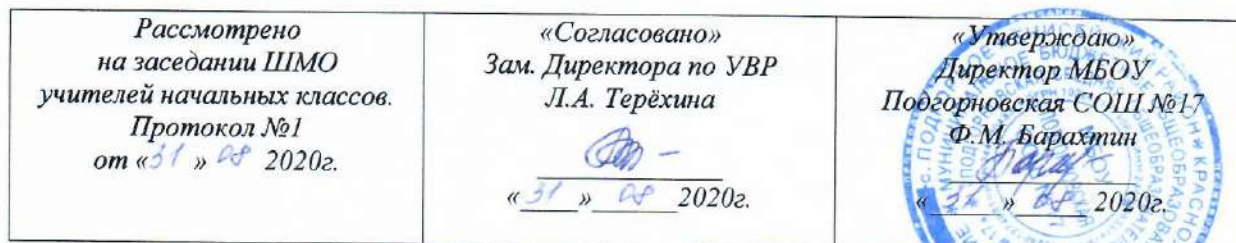 Рассмотрено
на заседании ШМО
учителей начальных классов.
Протокол №1
от «31 » 08 2020г.
«Согласовано»
Зам. Директора по УВР
Л.А. Терёхина
« 31 » 08 2020г.
«Утверждаю»
Директор МБОУ
Подгорновская СОШ №17
Ф.М. Барахтин
« 31 » 08 2020г.